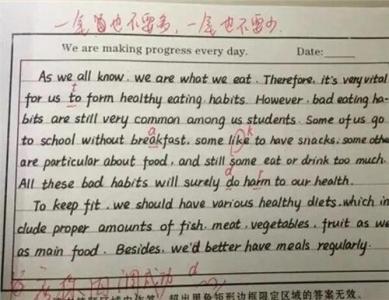 一笔也不要多，一笔也不要少.
We are making progress every day. Date:
As we all know, we are what we eat. Therefore, it's very vital
t
for us to form healthy eating habits. However, bad eating ha-
bits are still very common among us students. Some of us go
a k
to school without breakfast, some like to have snacks, some othe
are particular about food, and still some eat or drink too much.
d r
All these bad habits will surely do harm to our health.
To keep fit, we should have various healthy diets, which in
clude proper amounts of fish, meat, vegetables, fruit as we
as main food. Besides, we'd better have meals regularly.
d
超出黑色矩形边框限定区域的答案无效。